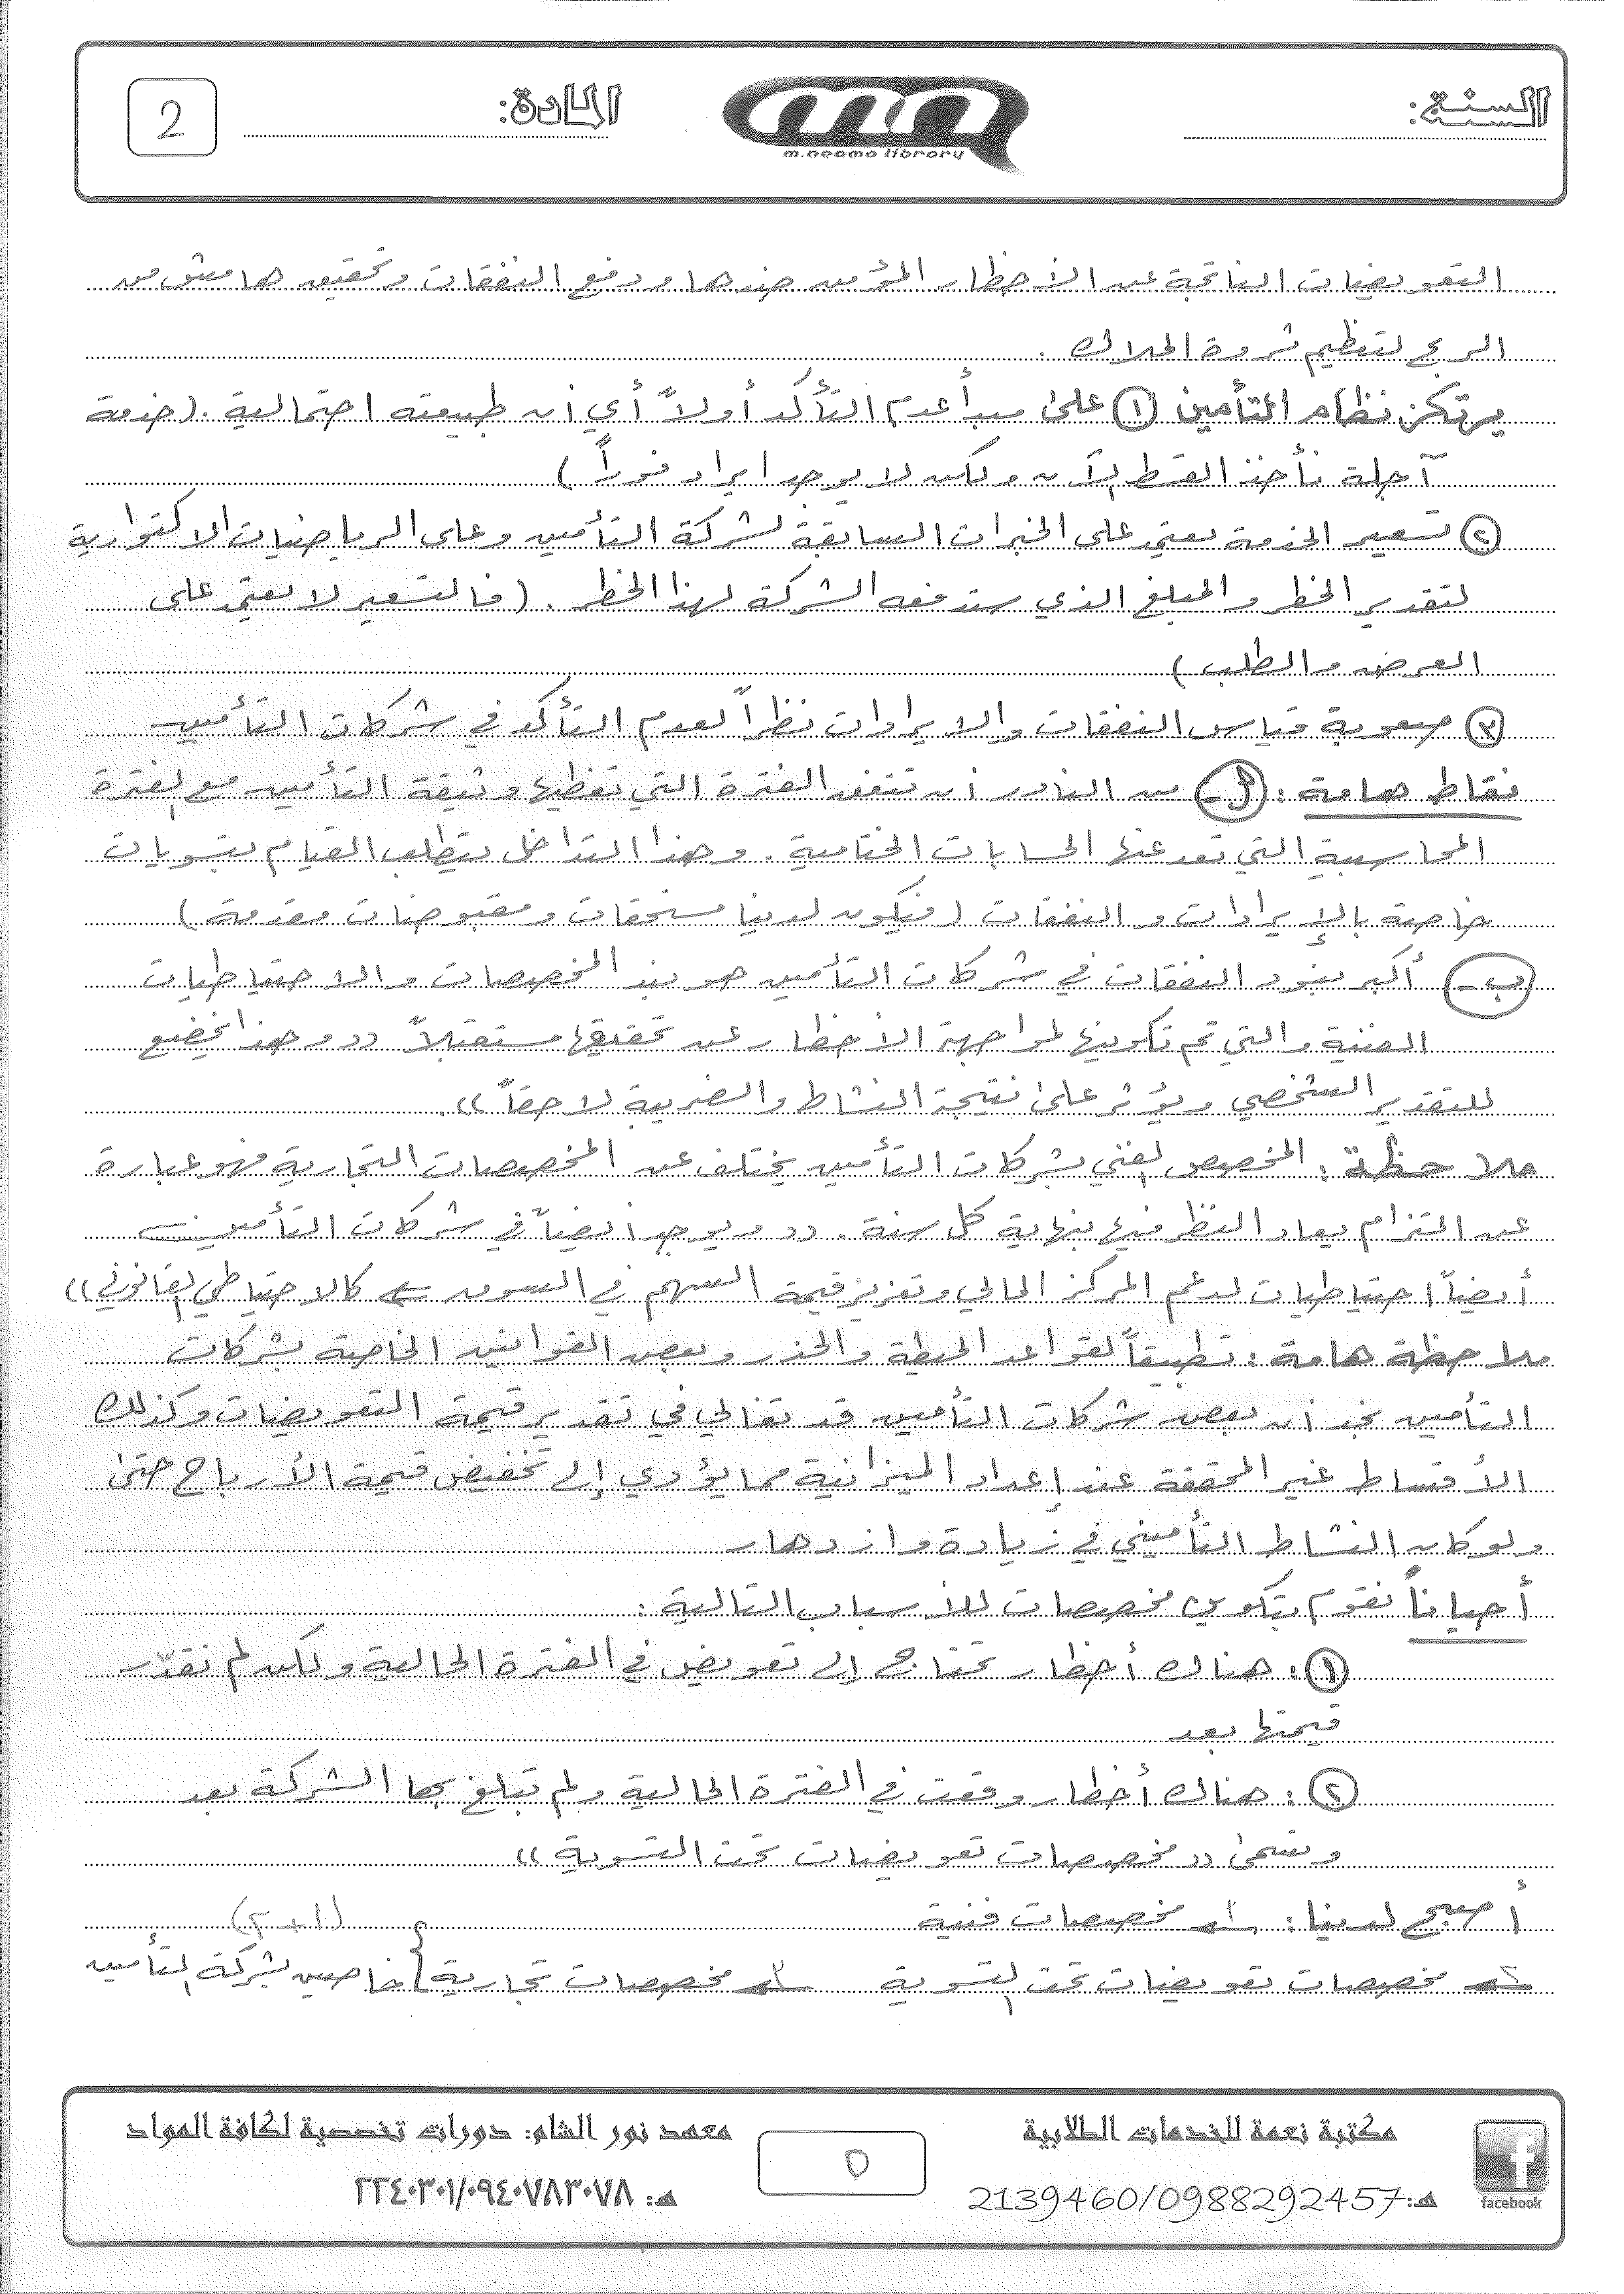 السنة:
m.neama library
المادة:
2
التعويضات الناتجة عن الأخطار المؤمن ضدها ودفع النفقات وتحقيق هامش من
الربح لتعظيم ثروة الملاك .
يرتكز نظام التأمين ① على مبدأ عدم التأكد أولاً أي أن طبيعته احتمالية . (خدمة
آجلة نأخذ القسط الآن ولكن لا يوجد ايراد فوراً )
② تسعير الخدمة يعتمد على الخبرات السابقة لشركة التأمين وعلى الرياضيات الاكتوارية
لتقدير الخطر والمبلغ الذي ستدفعه الشركة لهذا الخطر . ( فالتسعير لا يعتمد على
العرض والطلب )
③ صعوبة قياس النفقات والايرادات نظراً لعدم التأكد في شركات التأمين
نقاط هامة : أ- من النادر أن تتفق الفترة التي تغطيها وثيقة التأمين مع الفترة
المحاسبية التي تعد عنها الحسابات الختامية . وهذا التداخل يتطلب القيام بتسويات
خاصة بالإيرادات والنفقات ( فيكون لدينا مستحقات ومقبوضات مقدمة )
ب- أكبر بنود النفقات في شركات التأمين هو بند المخصصات والاحتياطيات
الفنية والتي تم تكوينها لمواجهة الأخطار عن تحقيقها مستقبلاً (( وهذا يخضع
للتقدير الشخصي ويؤثر على نتيجة النشاط والضريبة لاحقاً )).
ملاحظة : المخصص الفني بشركات التأمين يختلف عن المخصصات التجارية فهو عبارة
عن التزام يعاد النظر فيها بنهاية كل سنة . (( ويوجد أيضاً في شركات التأمين
أيضاً احتياطيات لدعم المركز المالي وتعزيز قيمة السهم في السوق كالاحتياطي القانوني ))
ملاحظة هامة : تطبيقاً لقواعد الحيطة والحذر وبعض القوانين الخاصة بشركات
التأمين نجد أن بعض شركات التأمين قد تغالي في تقدير قيمة التعويضات وكذلك
الأقساط غير المحققة عند إعداد الميزانية مما يؤدي إلى تخفيض قيمة الأرباح حتى
ولو كان النشاط التأميني في زيادة وازدهار
أحياناً نقوم بتكوين مخصصات للأسباب التالية :
① : هناك أخطار تحتاج إلى تعويض في الفترة الحالية ولكن لم نقدّر
قيمتها بعد
② : هناك أخطار وقعت في الفترة الحالية ولم تبلغ بها الشركة بعد
وتسمى (( مخصصات تعويضات تحت التسوية ))
أصبح لدينا : ١- مخصصات فنية (١+٢)
٢- مخصصات تعويضات تحت التسوية ٣- مخصصات تجارية } خاصين بشركة التأمين
facebook
مكتبة نعمة للخدمات الطلابية
هـ: 2139460/0988292457
٥
معهد نور الشام: دورات تخصصية لكافة المواد
هـ: ٢٢٤٠٣٠١/٠٩٤٠٧٨٣٠٧٨